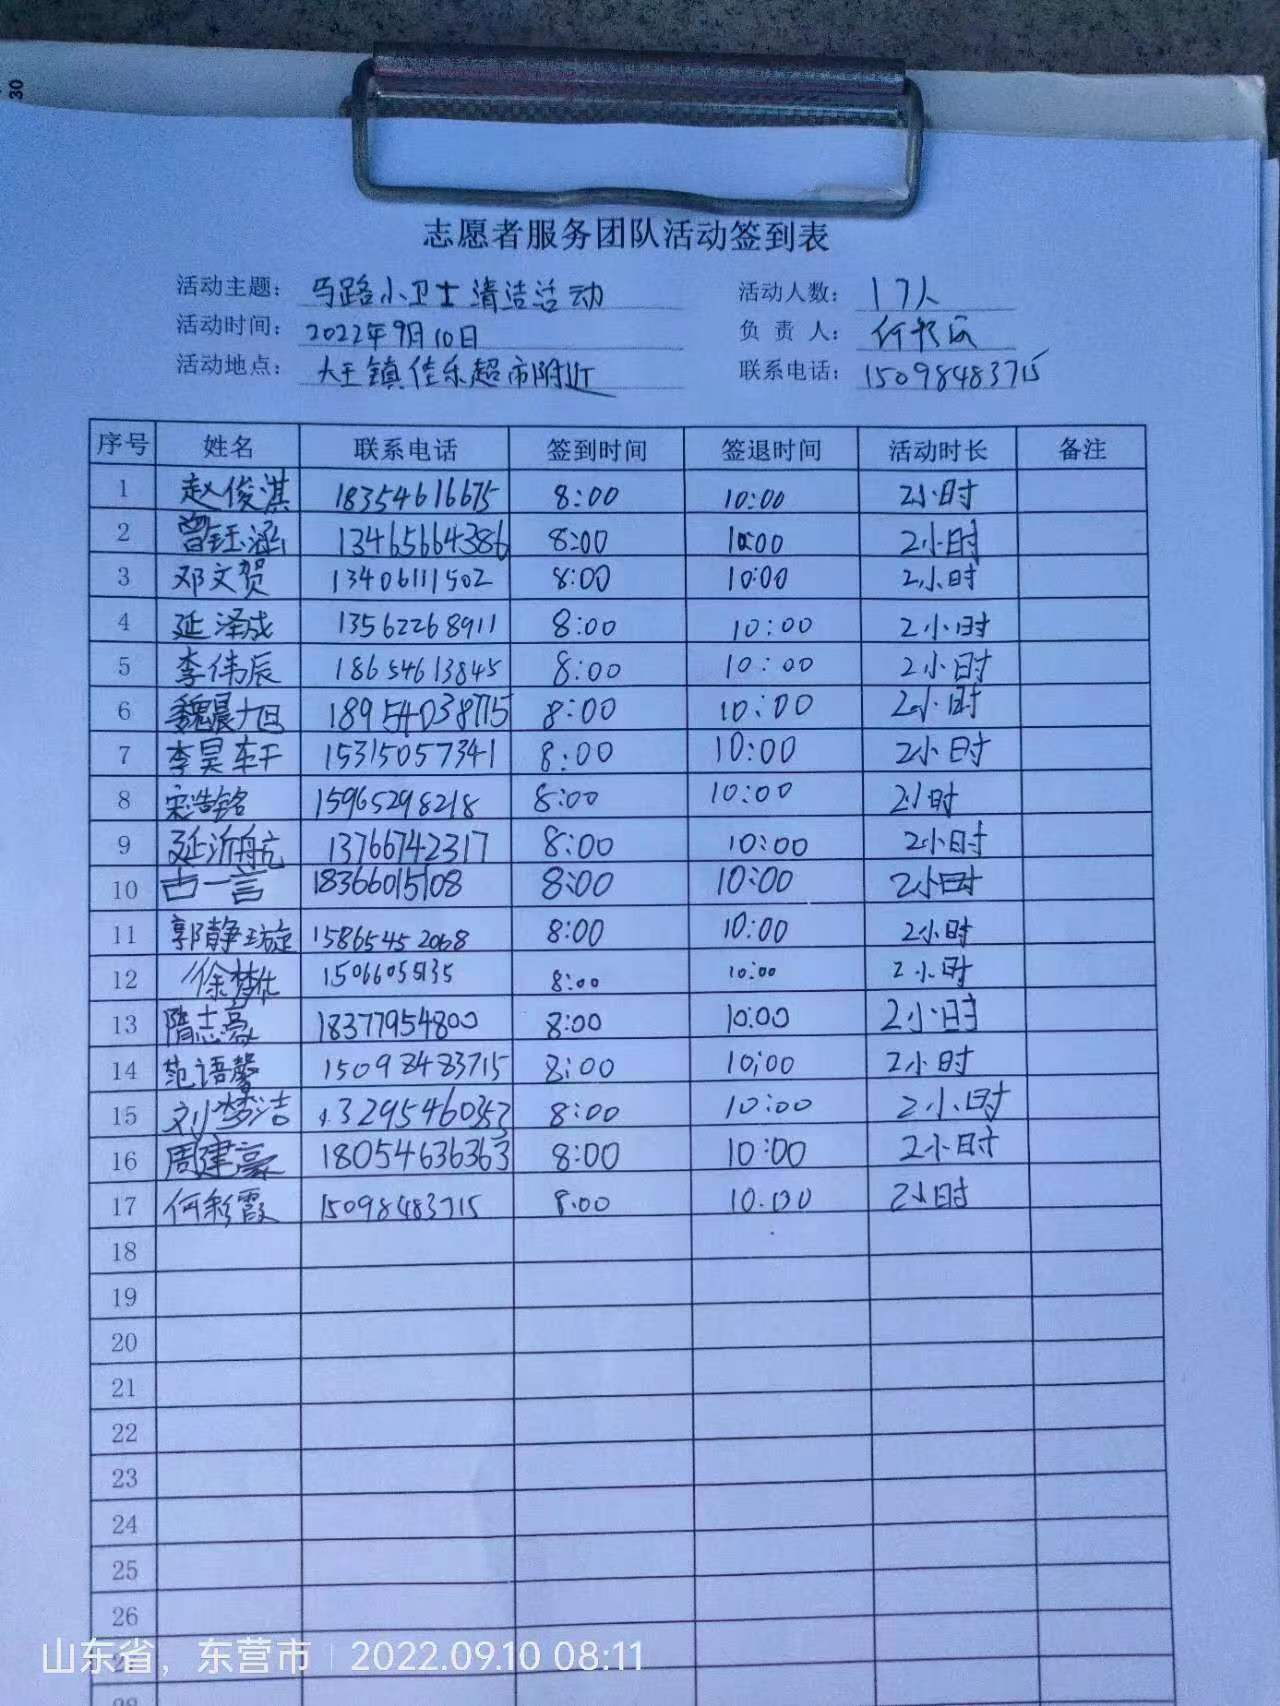 30
志愿者服务团队活动签到表
活动主题： 马路小卫士清洁活动 活动人数： 17人
活动时间： 2022年9月10日 负 责 人： 何彩霞
活动地点： 大王镇佳乐超市附近 联系电话： 15098483715
序号 姓名 联系电话 签到时间 签退时间 活动时长 备注
1 赵俊淇 18354616675 8:00 10:00 2小时
2 曾钰涵 13465664386 8:00 10:00 2小时
3 邓文贺 13406111502 8:00 10:00 2小时
4 延泽成 13562268911 8:00 10:00 2小时
5 李伟辰 18654613845 8:00 10:00 2小时
6 魏晨旭 18954038775 8:00 10:00 2小时
7 李昊轩 15315057341 8:00 10:00 2小时
8 宋浩铭 15965298218 8:00 10:00 2小时
9 延沂航 13766742317 8:00 10:00 2小时
10 古一言 18366015108 8:00 10:00 2小时
11 郭静璇 15865452068 8:00 10:00 2小时
12 徐梦 15066055135 8:00 10:00 2小时
13 隋志豪 18377954800 8:00 10:00 2小时
14 范语馨 15098483715 8:00 10:00 2小时
15 刘梦洁 13295460353 8:00 10:00 2小时
16 周建豪 18054636363 8:00 10:00 2小时
17 何彩霞 15098483715 8.00 10.00 2小时
18
19
20
21
22
23
24
25
26
山东省，东营市 2022.09.10 08:11